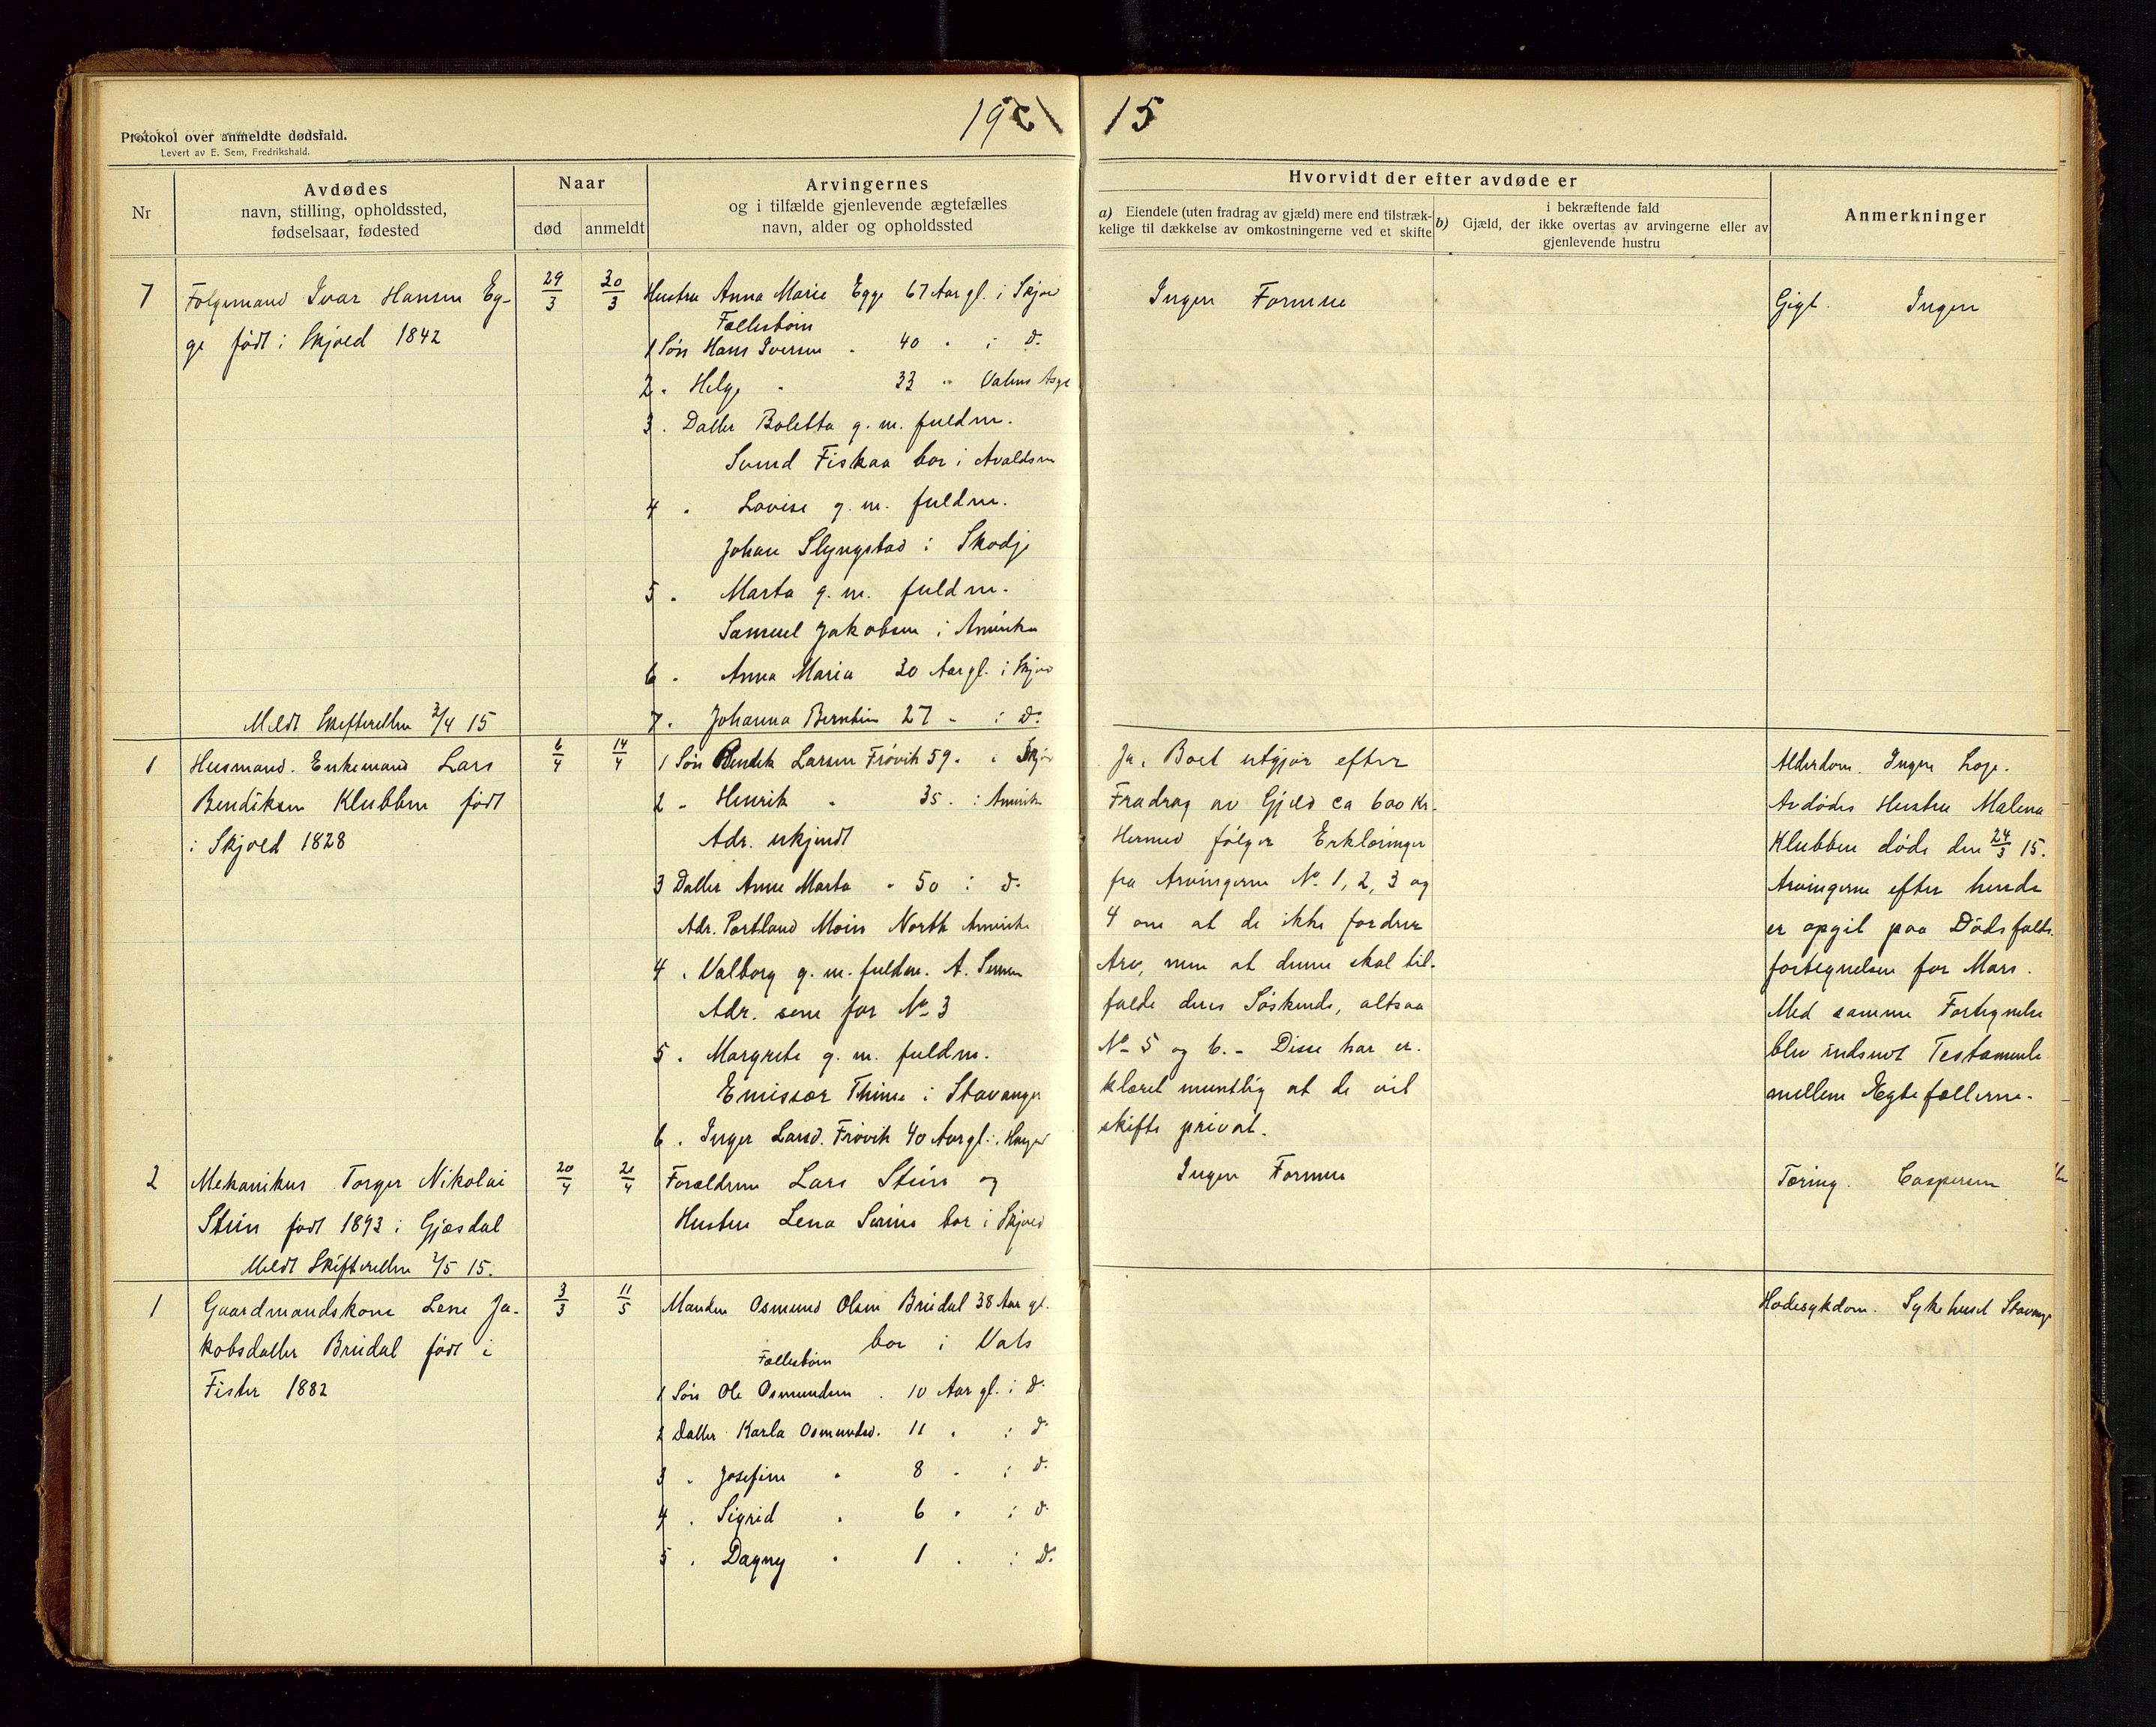 19 15
Protokol over anmeldte dødsfald.
Levert av E. Sem, Fredrikshald.
Nr
Avdødes
navn, stilling, opholdssted,
fødselsaar, fødested
Naar
død anmeldt
Arvingernes
og i tilfælde gjenlevende ægtefælles
navn, alder og opholdssted
Hvorvidt der efter avdøde er
a) Eiendele (uten fradrag av gjæld) mere end tilstræk-
kelige til dækkelse av omkostningerne ved et skifte
i bekræftende fald
b) Gjæld, der ikke overtas av arvingerne eller av
gjenlevende hustru
Anmerkninger
7 Følgemand Ivar Hansen Eg-
ge født i Skjold 1842
29/3 30/3
Hustru Anna Marie Egge 67 Aar gl. i Skjold
Fællesbørn
1 Søn Hans Iversen " 40 " i do
2 " Helge " 33 " Vatens
3 " Datter Boletta g. m. fuldm.
Svend Fiskaa bor i Avaldsn
4 " Lovise g. m. fuldm.
Johan Slyngstad i Skodje
5 " Marta g. m. fuldm.
Samuel Jakobsen i Amerika
6 " Anna Maria 30 Aar gl. i Skjold
7 " Johanna Berntine 27 " i do
Ingen Formue
Gigt. Ingen
Meldt Skifteretten 2/4 15
1 Husmand. Enkemand Lars
Bendiksen Klubben født
i Skjold 1828
6/4 14/4
1 Søn Bendik Larsen Frøvik 59 " i Skjold
2 " Henrik " 35 " i Amerika
Adr. ukjendt
3 Datter Anne Marta " 50 i do
Adr. Portland Moin North Amerika
4 " Valborg g. m. fuldm. A.
Adr. som for No 3
5 " Margrete g. m. fuldm.
Emissær Thime i Stavanger
6 " Inger Larsd. Frøvik 40 Aar gl. i
Ja. Boet utgjør efter
Fradrag av Gjeld ca 600 Kr.
Hermed følger Erklæringer
fra Arvingerne No 1, 2, 3 og
4 om at de ikke fordrer
Arv, men at denne skal til-
falde deres Søskende, altsaa
No 5 og 6. - Disse har er-
klæret muntlig at de vil
skifte privat.
Alderdom. Ingen Læge.
Avdødes Hustru Malena
Klubben døde den 24/3 15.
Arvingerne efter hende
er opgit paa Dødsfalds-
fortegnelsen for Mars.
Med samme Fortegnelse
blev indsendt Testamente
mellem Ægtefællerne.
2 Mekanikus Torger Nikolai
Stein født 1893 i Gjæsdal
20/4 21/4
Forældrene Lars Stein og
Hustru Lena Serine bor i Skjold
Ingen Formue
Tæring. Caspersen
Meldt Skifteretten 2/5 15.
1 Gaardmandskone Lene Ja-
kobsdatter Breidal født i
Fister 1882
3/3 11/5
Manden Osmund Olsen Breidal 38 Aar gl.
bor i Vats
Fællesbørn
1 Søn Ole Osmundsen " 10 Aar gl. i do
2 Datter Karla Osmundsd. 11 " i do
3 " Josefine " 8 " i do
4 " Sigrid " 6 " i do
5 " Dagny " 1 " i do
Hodesykdom. Sykehuset Stavanger